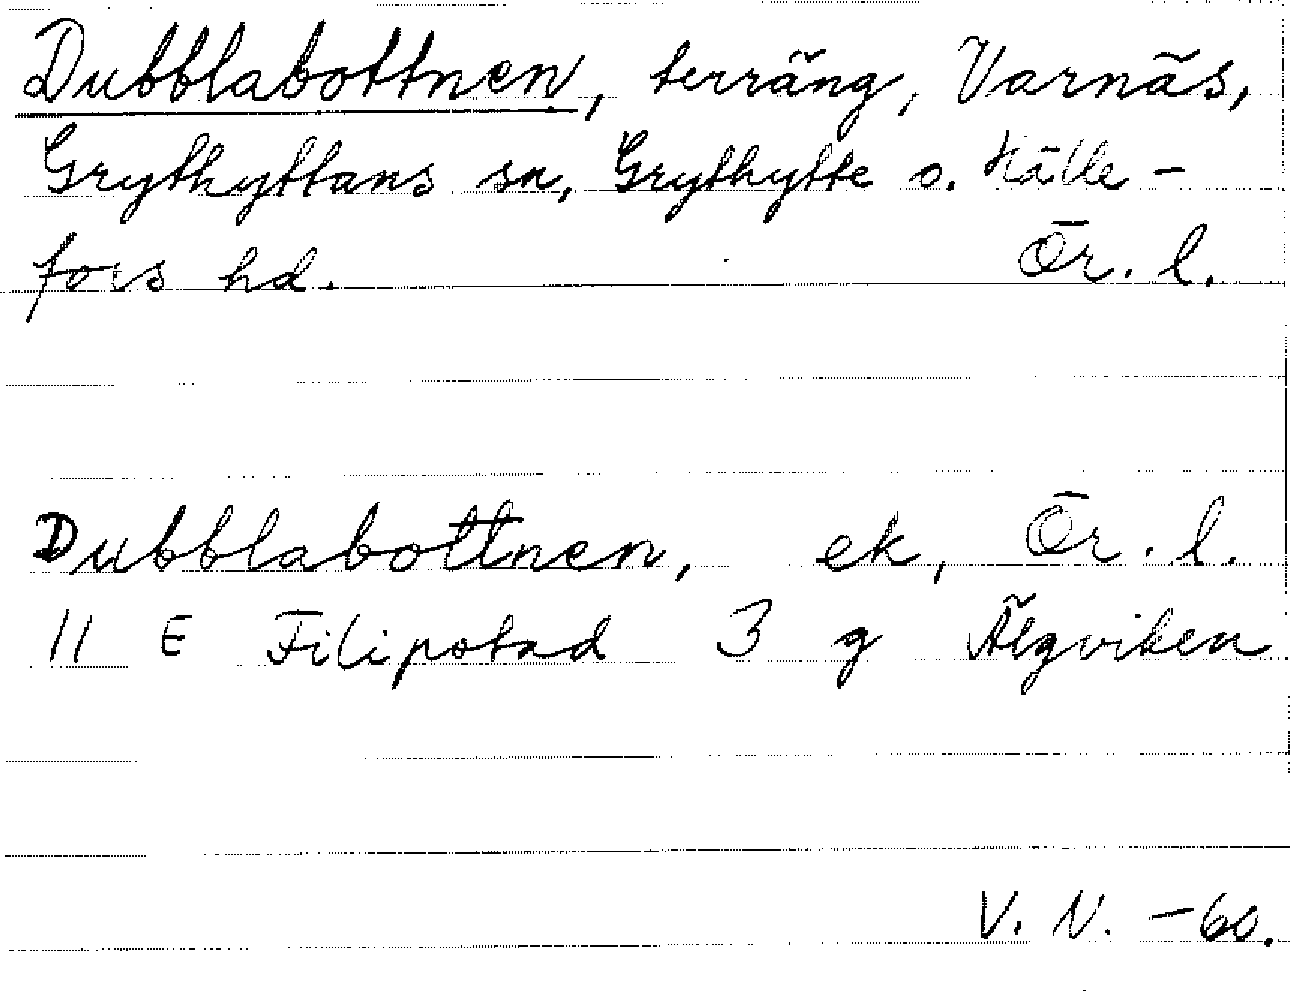 Dubblabottnen, terräng, Varnäs,
Grythyttans sn, Grythytte o. Hälle-
fors hd. Ör. l.
Dubblabottnen, ek, Ör. l.
11 E Filipstad 3 g Älgviken
V. N. -60.